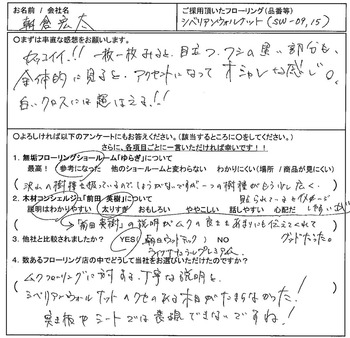 お名前 / 会社名
朝倉宏太
ご採用頂いたフローリング(品番等)
シベリアンウォルナット(SW-09,15)
○まずは率直な感想をお願いします。
カッコイイ!! 一枚一枚みると、目立つフシの黒い部分も、
全体的に見ると、アクセントになってオシャレな感じ。
白いクロスには超はえる!!
○よろしければ以下のアンケートにもお答えください。(該当するところに○をしてください。)
さらに、各項目ごとに一言いただければ幸いです!!
1. 無垢フローリングショールーム「ゆらぎ」について
最高! 参考になった 他のショールームと変わらない わかりにくい(場所 / 商品が見にくい)
沢山の樹種を扱っているので、しょうがないですが一つの樹種がもう少し広く
2. 木材コンシェルジュ「前田 英樹」について
貼られているとイメージ
説明はわかりやすい 太りすぎ おもしろい ややこしい 話しやすい 心配だ
「前田英樹」の説明がムクの良さもあまりも伝えてくれて
グッドだった。
3. 他社と比較されましたか? YES( 朝日ウッドテック ) NO
ライブナチュラルプレミアム
4. 数あるフローリング店の中でどうして当社をお選びいただけたのですか?
ムクフローリングに対する、丁寧な説明と、
シベリアンウォールナットのクセのある木目がたまらなかった!
突き板やシートでは表現できないですね!